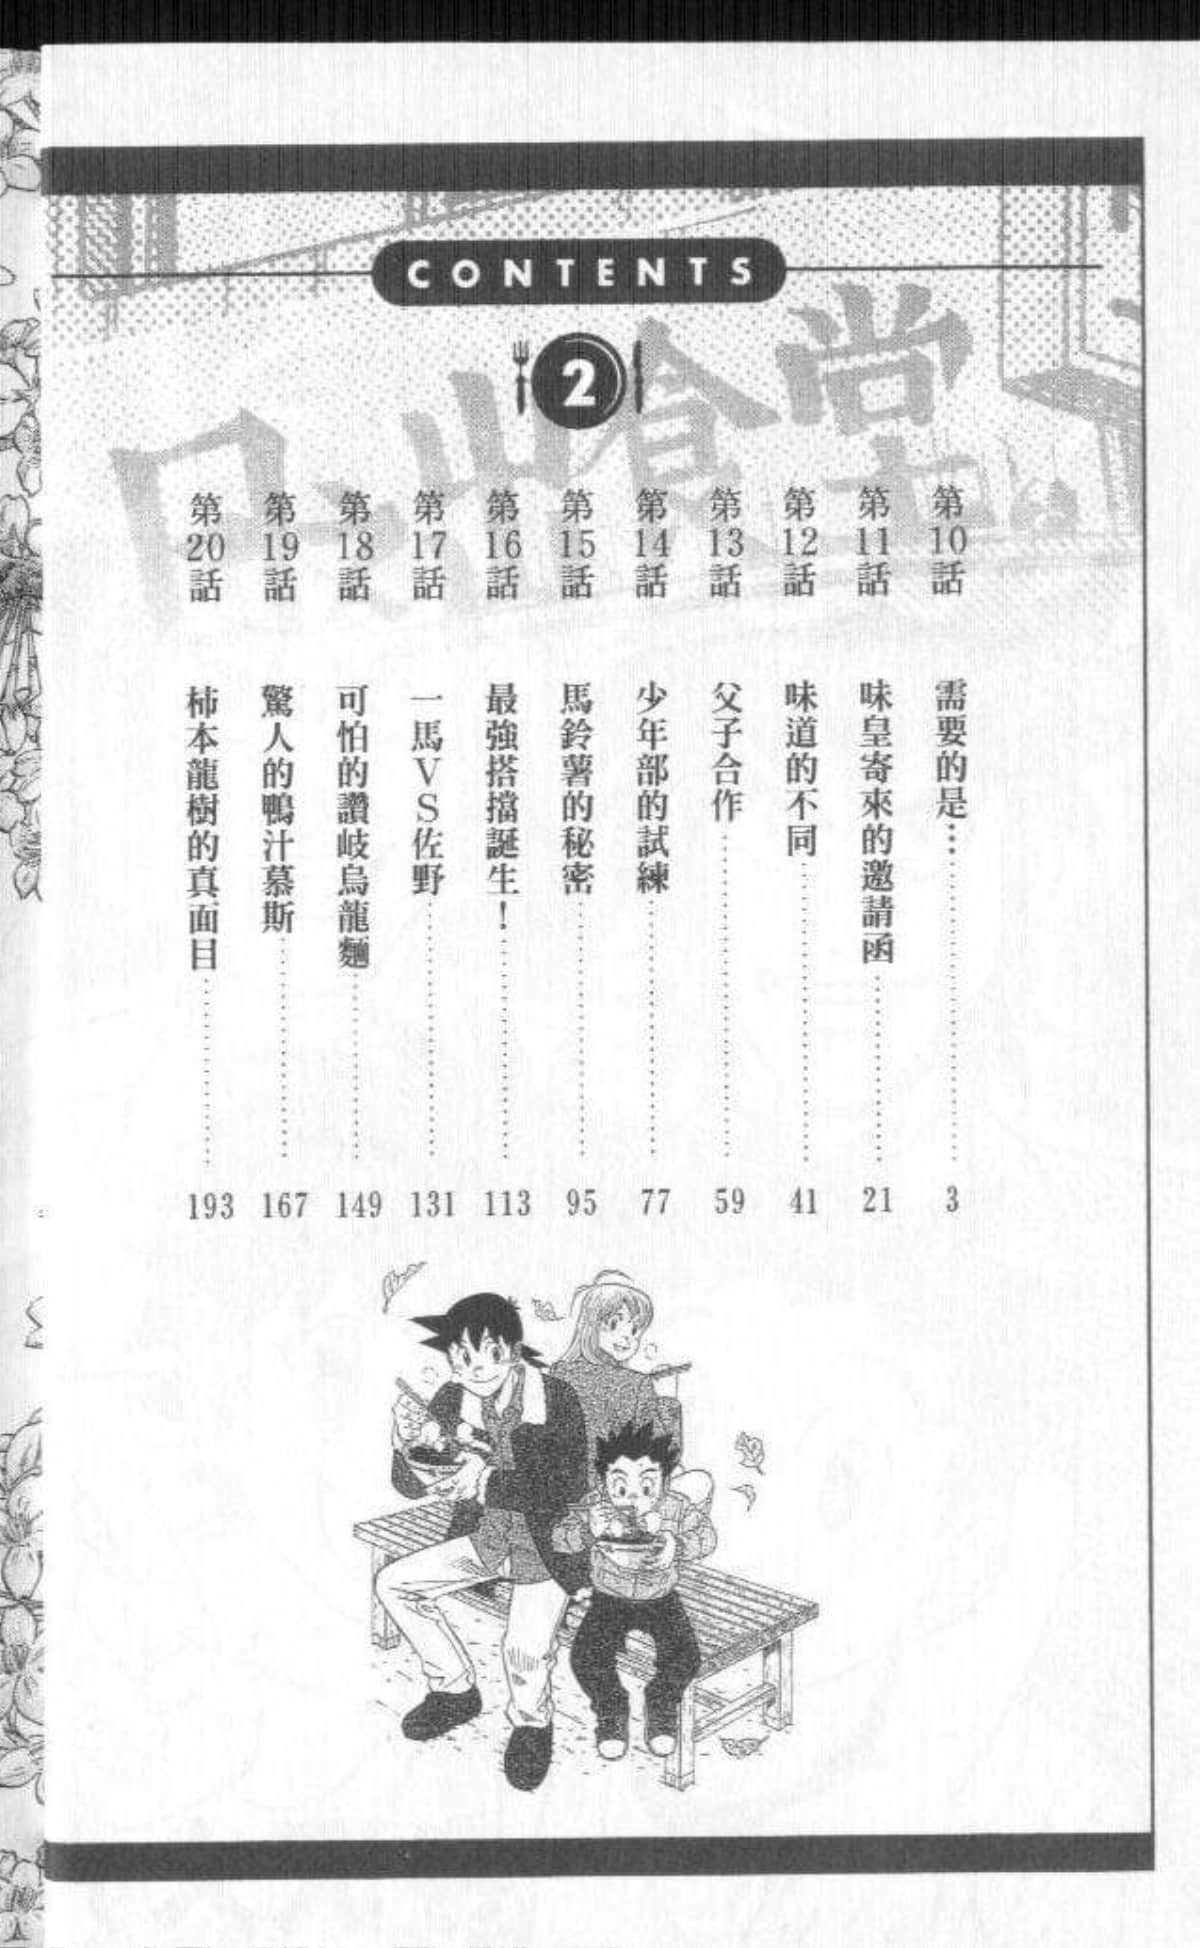 CONTENTS
2
日出食堂
第10話 需要的是… 3
第11話 味皇寄來的邀請函 21
第12話 味道的不同 41
第13話 父子合作 59
第14話 少年部的試練 77
第15話 馬鈴薯的秘密 95
第16話 最強搭擋誕生！ 113
第17話 一馬ＶＳ佐野 131
第18話 可怕的讚岐烏龍麵 149
第19話 驚人的鴨汁慕斯 167
第20話 柿本龍樹的真面目 193